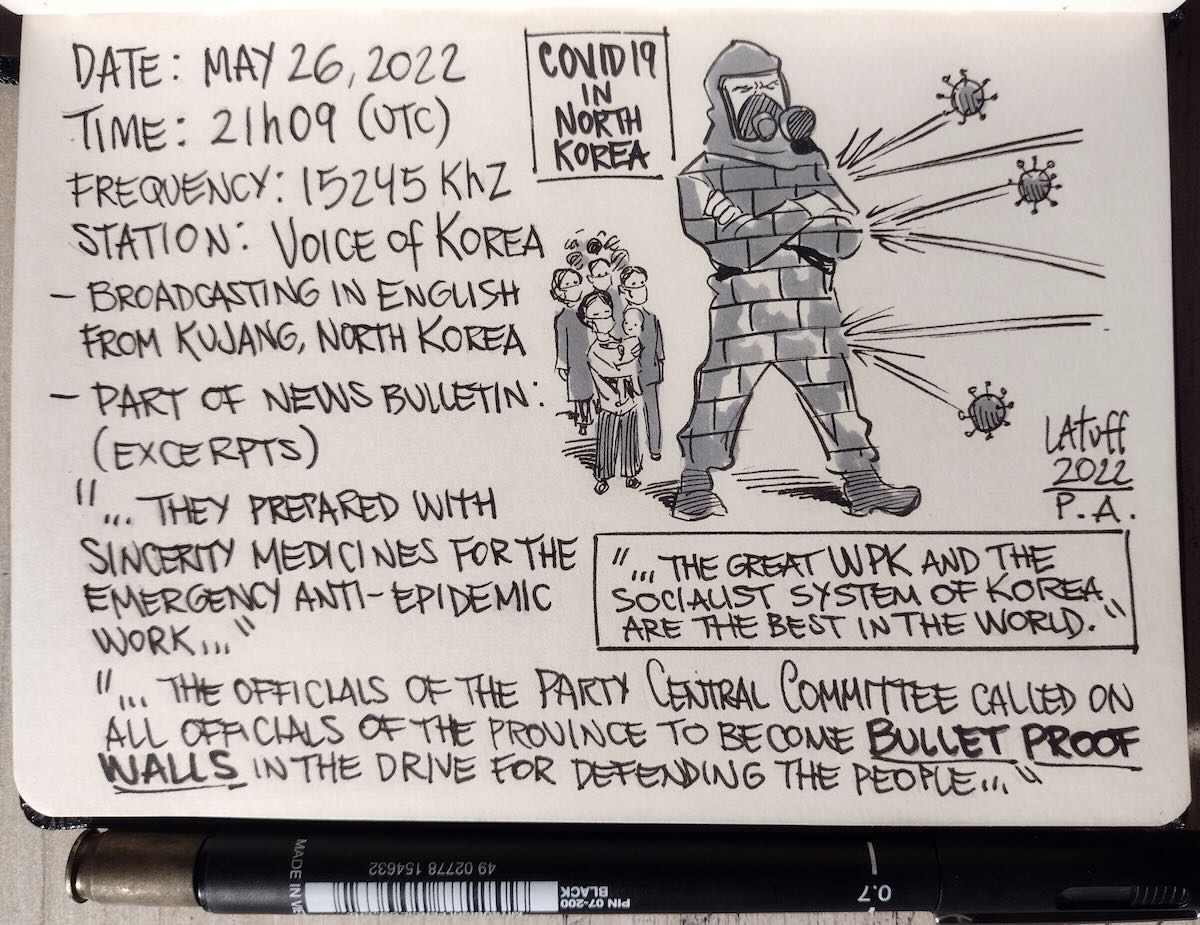 DATE: MAY 26, 2022
TIME: 21h09 (UTC)
FREQUENCY: 15245 KhZ
STATION: VOICE of KOREA
– BROADCASTING IN ENGLISH
FROM KUJANG, NORTH KOREA
– PART OF NEWS BULLETIN:
(EXCERPTS)
"... THEY PREPARED WITH
SINCERITY MEDICINES FOR THE
EMERGENCY ANTI-EPIDEMIC
WORK..."
COVID19
IN
NORTH
KOREA
LATUFF
2022
P.A.
"... THE GREAT WPK AND THE
SOCIALIST SYSTEM OF KOREA
ARE THE BEST IN THE WORLD."
"... THE OFFICIALS OF THE PARTY CENTRAL COMMITTEE CALLED ON
ALL OFFICIALS OF THE PROVINCE TO BECOME BULLET PROOF
WALLS IN THE DRIVE FOR DEFENDING THE PEOPLE..."
MADE IN
49 02778 154632
PIN 07-200
BLACK
0.7